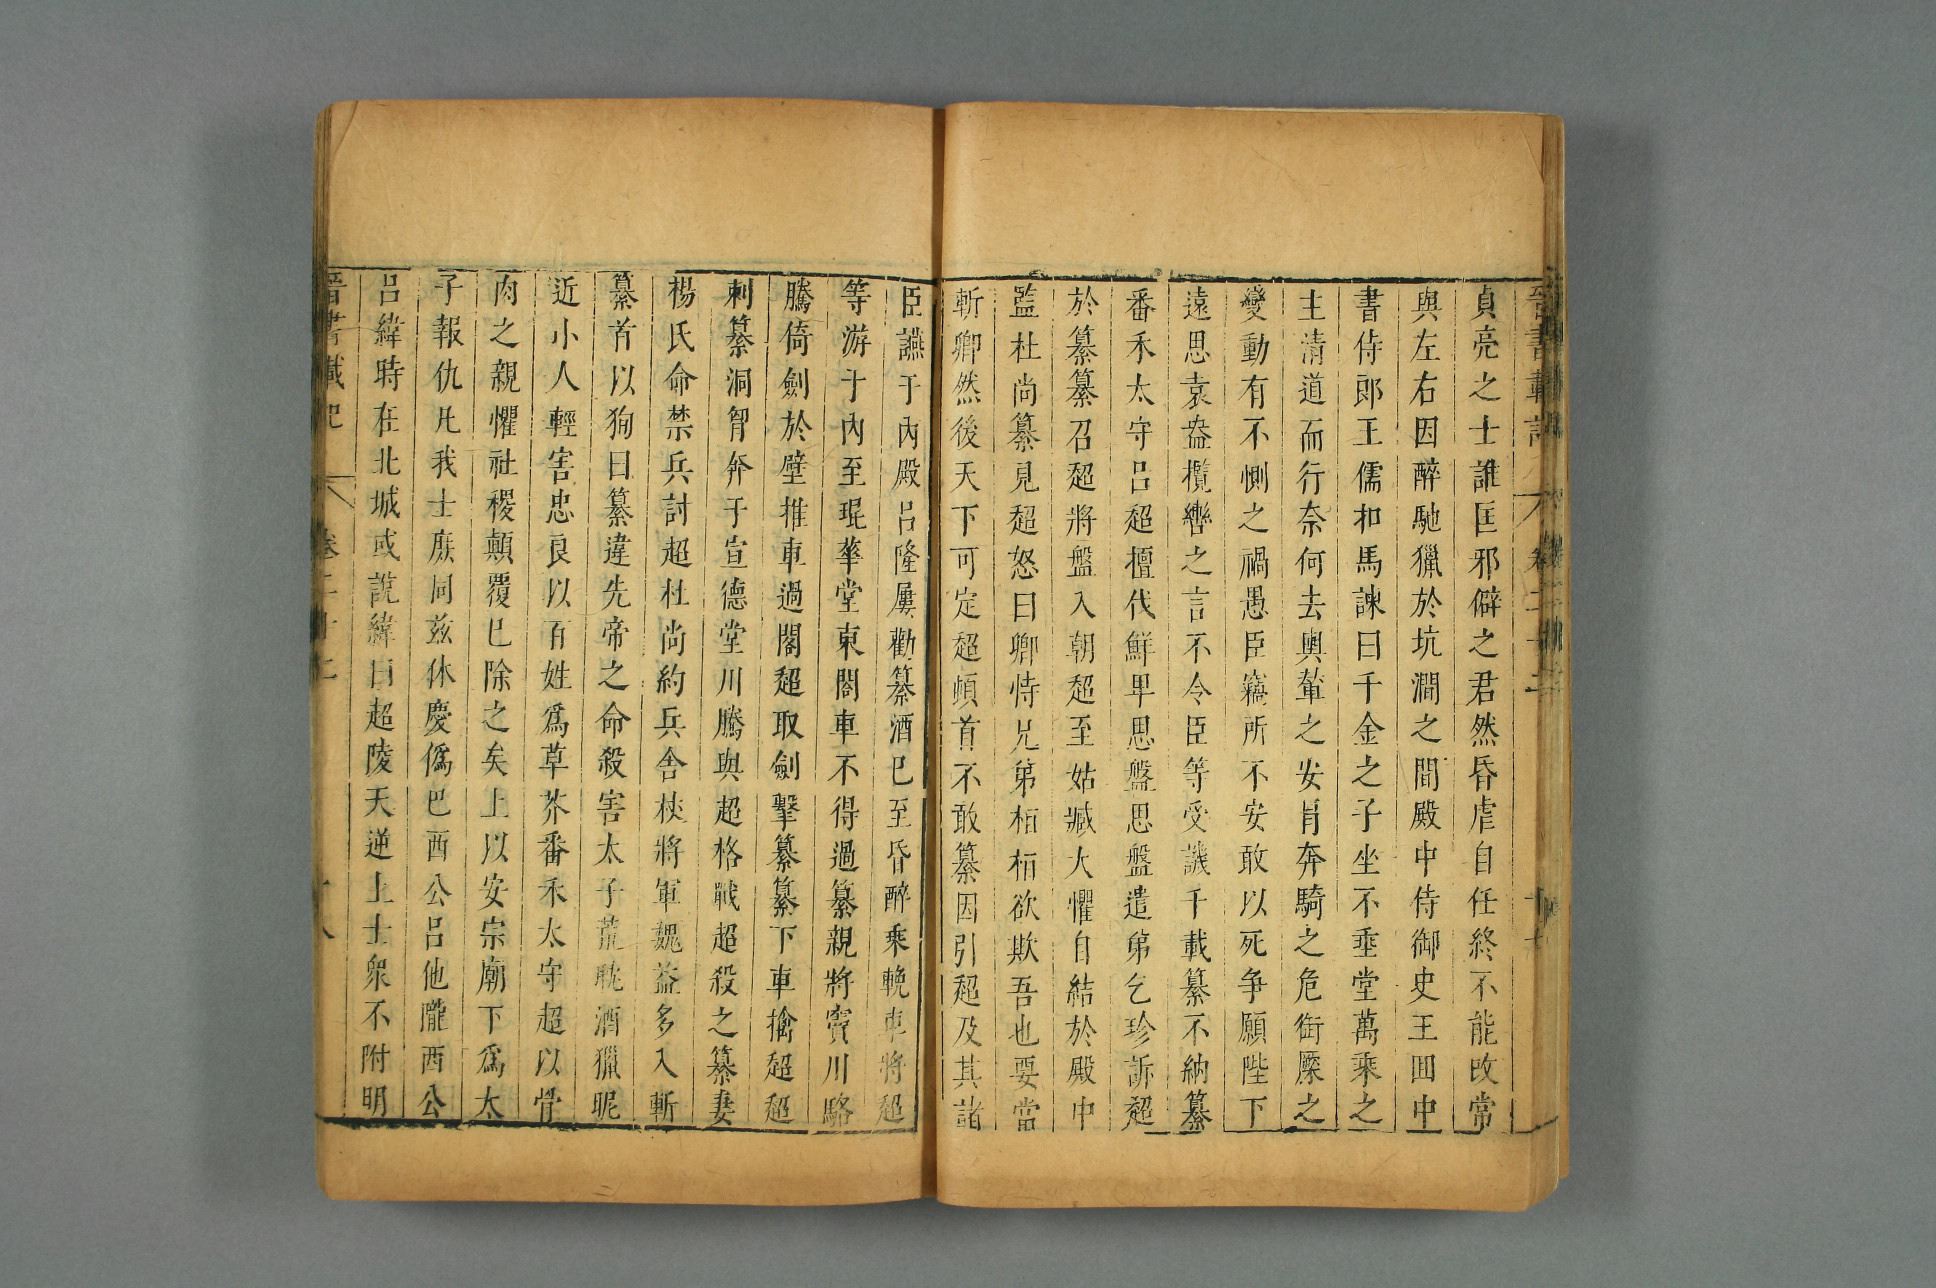 晉書載記 卷二十二 十七
貞亮之士誰匡邪僻之君然昏虐自任終不能改常
與左右因醉馳獵於坑澗之間殿中侍御史王回中
書侍郎王儒扣馬諫曰千金之子坐不垂堂萬乘之
主清道而行奈何去輿輦之安冐奔騎之危銜橜之
變動有不惻之禍愚臣竊所不安敢以死爭願陛下
遠思袁盎攬轡之言不令臣等受譏千載纂不納纂
番禾太守呂超擅伐鮮卑思盤思盤遣弟乞珍訴超
於纂纂召超將盤入朝超至姑臧大懼自結於殿中
監杜尚纂見超怒曰卿恃兄弟桓桓欲欺吾也要當
斬卿然後天下可定超頓首不敢纂因引超及其諸
臣讌于內殿呂隆屢勸纂酒已至昏醉乘輓車將超
等游于內至琨華堂東閤車不得過纂親將竇川駱
騰倚劍於壁推車過閤超取劍擊纂纂下車擒超超
刺纂洞胷奔于宣德堂川騰與超格戰超殺之纂妻
楊氏命禁兵討超杜尚約兵舍杖將軍魏益多入斬
纂首以狥曰纂違先帝之命殺害太子荒耽酒獵昵
近小人輕害忠良以百姓爲草芥番禾太守超以骨
肉之親懼社稷顛覆已除之矣上以安宗廟下爲太
子報仇凡我士庶同茲休慶僞巴西公呂他隴西公
呂緯時在北城或說緯曰超陵天逆上士衆不附明
晉書載記 卷二十二 十八